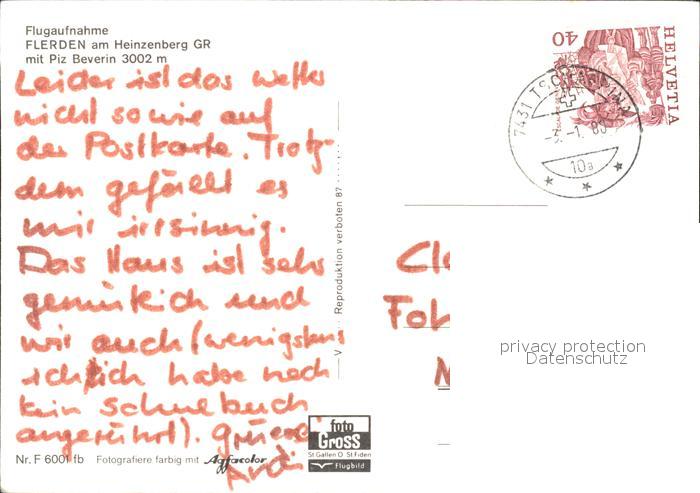 Flugaufnahme
FLERDEN am Heinzenberg GR
mit Piz Beverin 3002 m
Leider ist das Wetter
nicht so wie auf
der Postkarte. Trotz-
dem gefällt es
mir irrsinnig.
Das Haus ist sehr
gemütlich und
wir auch (wenigstens
ich) ich habe noch
kein Schulbuch
angerührt).
Nr. F 6001 fb Fotografiere farbig mit Agfacolor
foto
GROSS
St Gallen O St Fiden
Flugbild
Reproduktion verboten 87
HELVETIA
40
7431
10a
privacy protection
Datenschutz